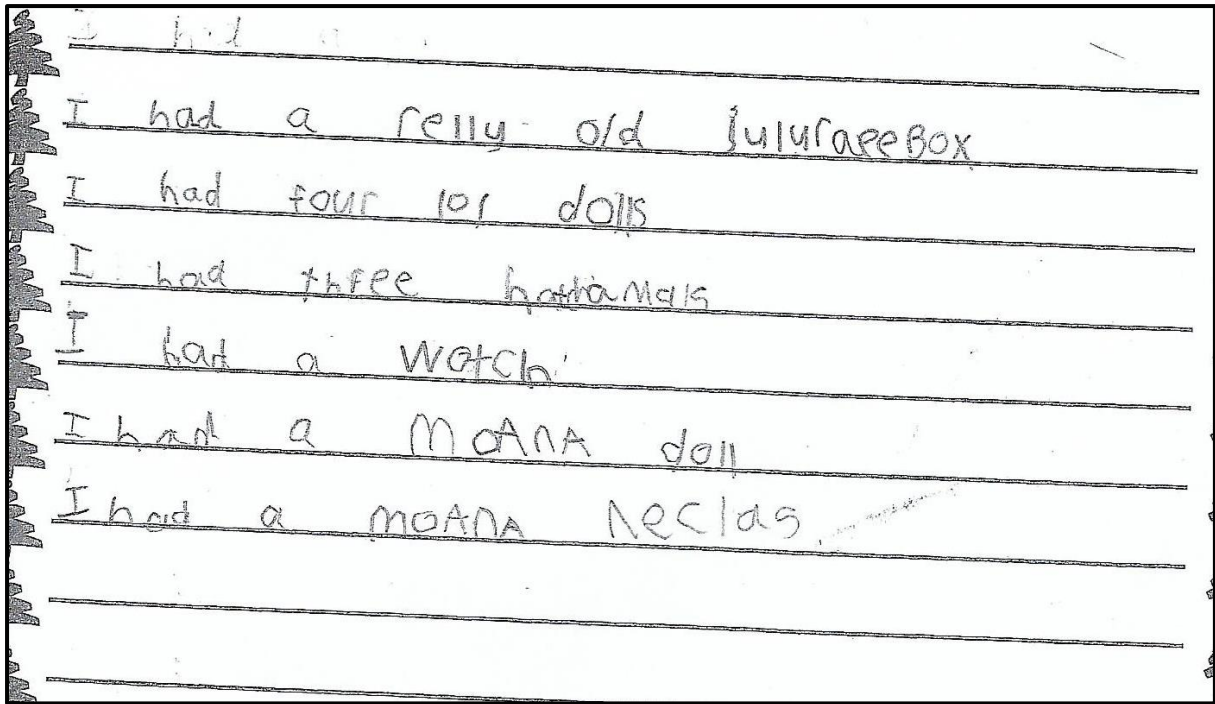 I had a
I had a relly old juluraeeBox
I had four lol dolls
I had three hathamals
I had a watch
I had a MoAnA doll
I had a moAnA neclas